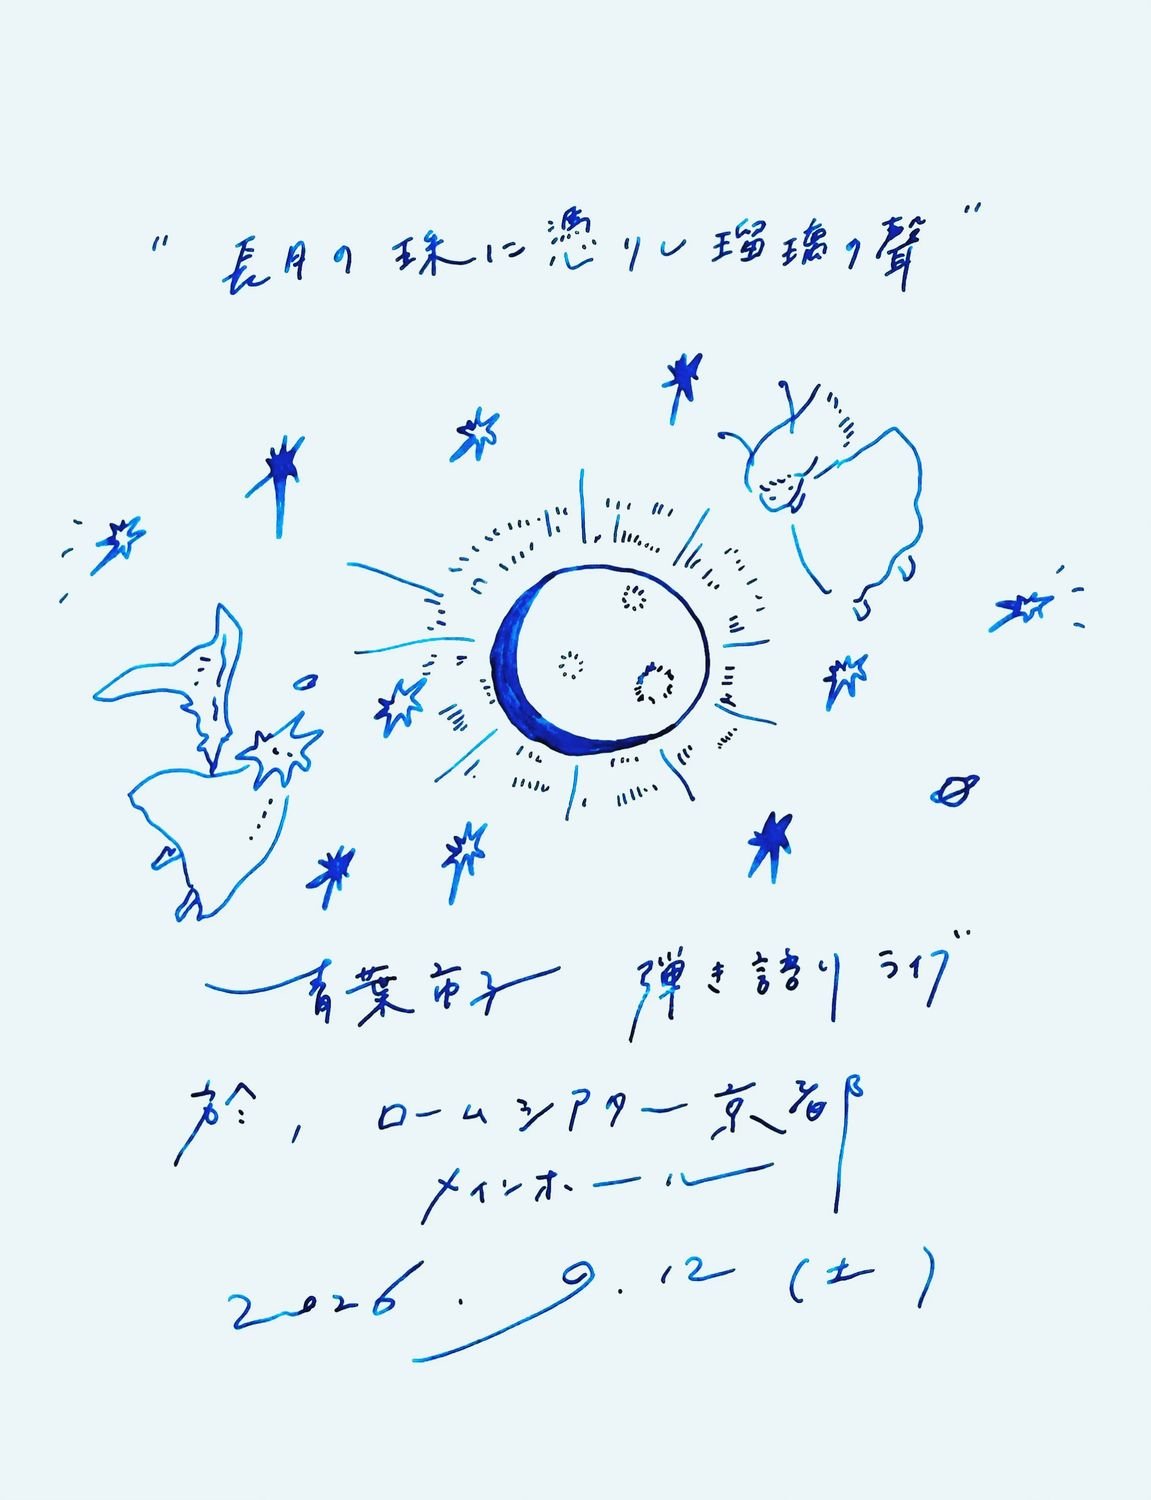 "長月の珠に憑りし瑠璃の聲"
青葉市子 弾き語りライブ
於, ロームシアター京都
メインホール
2026.9.12(土)